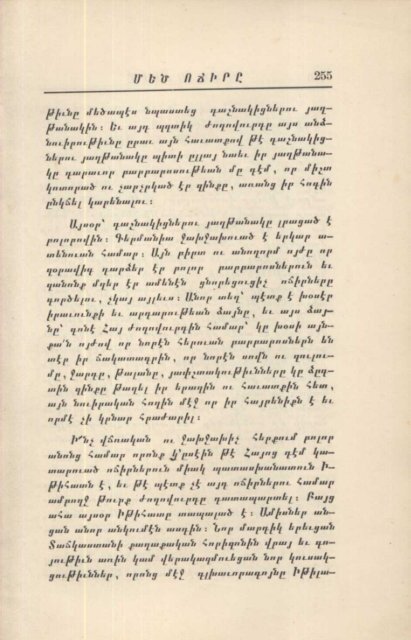 ՄԵԾ ՈՃԻՐԸ 255
թիւնը մեծապէս նպաստեց դաշնակիցներու յաղ-
թանակին։ Եւ այդ պզտիկ ժողովուրդը այս անձ-
նուիրութիւնը ըրաւ այն հաւատքով թէ դաշնակից-
ներու յաղթանակը պիտի ըլլայ նաեւ իր յաղթանա-
կը դարաւոր բարբարոսութեան մը դէմ, որ միշտ
կոտորած ու չարչրկած էր զինքը, առանց իր հոգին
ընկճել կարենալու։
Այսօր՝ դաշնակիցներու յաղթանակը լրացած է
բոլորովին։ Գերմանիա ջախջախուած է երկար ա-
տենուան համար։ Այն բիրտ ու անողորմ ոյժը որ
զօրավիգ դարձեր էր բոլոր բարբարոսներուն եւ
զանոնք մղեր էր ամենէն ցնորեցուցիչ ոճիրները
գործելու, չկայ այլեւս։ Անոր տեղ՝ պէտք է խօսէր
իրաւունքի եւ արդարութեան ձայնը, եւ այս ձայ-
նը՝ գոնէ Հայ ժողովուրդին համար՝ կը խօսի այն-
քա՜ն ոյժով որ նորէն հերուան բարբարոսներն են
տէր իր ճակատագրին, որ նորէն սովն ու գուլու-
մը, ջարդը, թալանը, յափշտակութիւնները կը ձըգ-
տին զինքը թաղել իր երազին ու հաւատքին հետ,
այն նուիրական հողին մէջ որ իր հայրենիքն է եւ
որմէ չի կրնար հրաժարիլ։
Ի՜նչ վճռական ու ջախջախիչ հերքում բոլոր
անոնց համար որոնք կ՚ըսէին թէ Հայոց դէմ կա-
տարուած ոճիրներուն միակ պատասխանատուն Ի-
թիհատն է, եւ թէ պէտք չէ այդ ոճիրներու համար
ամբողջ թուրք ժողովուրդը դատապարտել։ Բայց
ահա այսօր Իթիհատը տապալած է։ Ամիսներ ան-
ցան անոր անկումէն ասդին։ Նոր մարդիկ երեւցան
Տաճկաստանի քաղաքական հորիզոնին վրայ եւ գո-
յութիւն առին կամ վերակազմուեցան նոր կուսակ-
ցութիւններ, որոնց մէջ գլխաւորագոյնը Իթիլա-